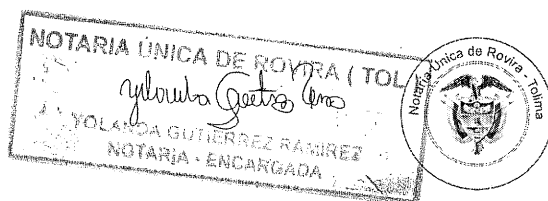 NOTARIA ÚNICA DE ROVIRA ( TOL
YOLANDA GUTIERREZ RAMIREZ
NOTARIA - ENCARGADA
Notaría Única de Rovira - Tolima